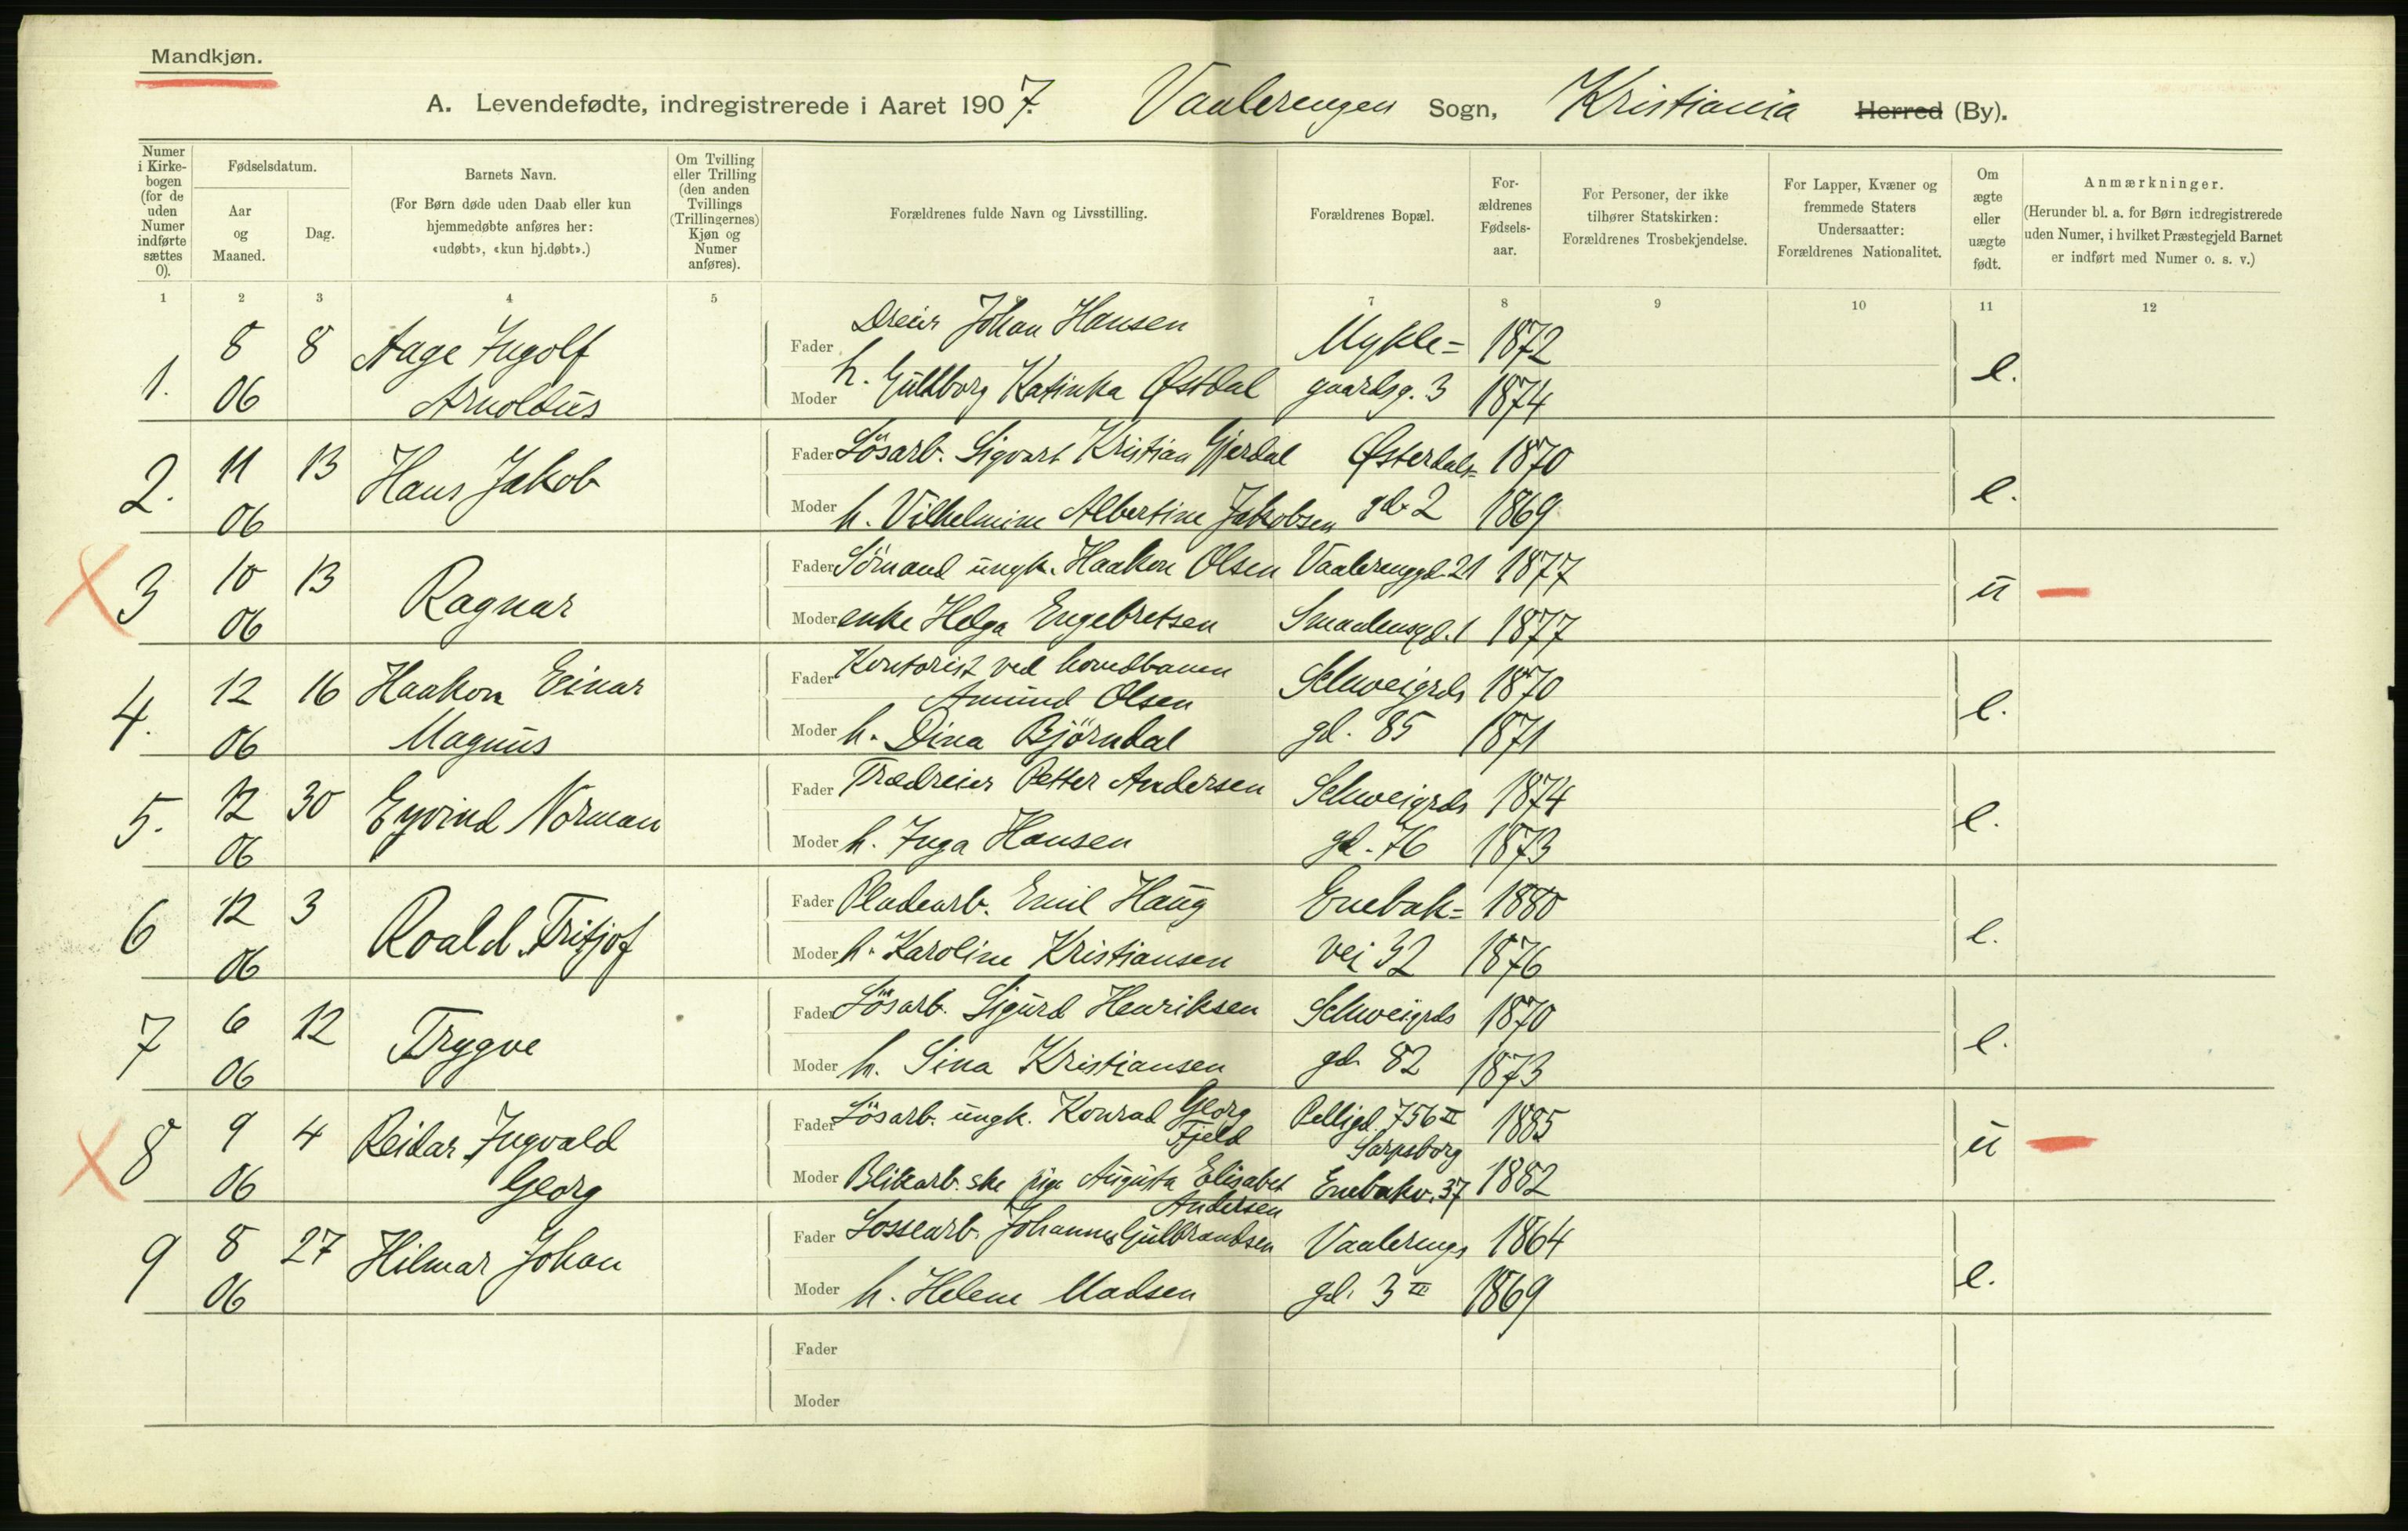 Mandkjøn.
A. Levendefødte, indregistrerede i Aaret 1907. Vaalerengen Sogn, Kristiania Herred (By).
Numer i Kirke-bogen (for de uden Numer indførte sættes 0).
Fødselsdatum.
Aar og Maaned.
Dag.
Barnets Navn.
(For Børn døde uden Daab eller kun hjemmedøbte anføres her: «udøbt», «kun hj.døbt».)
Om Tvilling eller Trilling (den anden Tvillings (Trillingernes) Kjøn og Numer anføres).
Forældrenes fulde Navn og Livsstilling.
Forældrenes Bopæl.
For-ældrenes Fødsels-aar.
For Personer, der ikke tilhører Statskirken: Forældrenes Trosbekjendelse.
For Lapper, Kvæner og fremmede Staters Undersaatter: Forældrenes Nationalitet.
Om ægte eller uægte født.
Anmærkninger.
(Herunder bl. a. for Børn indregistrerede uden Numer, i hvilket Præstegjeld Barnet er indført med Numer o. s. v.)
1 2 3 4 5 7 8 9 10 11 12
1. 8 8 Aage Ingolf Fader Dreier Johan Hansen Mykle= 1872 e.
06 Arnoldus Moder h. Guldborg Katinka Østdal gaardsg. 3 1874
2. 11 13 Hans Jakob Fader Løsarb. Sigvart Kristian Gjerdal Østerdals= 1870 e.
06 Moder h. Vilhelmine Albertine Jakobsen gd. 2 1869
3 10 13 Ragnar Fader Sømand ungk. Haakon Olsen Vaalerenggd. 21 1877 u
06 Moder enke Helga Engebretsen Smaalensgd. 1 1877
4. 12 16 Haakon Einar Fader Kontorist ved hovedbanen Schweigrds 1870 e.
Amund Olsen
06 Magnus Moder h. Dina Bjørndal gd. 85 1871
5. 12 30 Eyvind Norman Fader Trædreier Petter Andersen Schweigrds 1874 e.
06 Moder h. Inga Hansen gd. 76 1873
6 12 3 Roald Fritjof Fader Pladearb. Emil Haug Enebak= 1880 e.
06 Moder h. Karoline Kristiansen vei 32 1876
7 6 12 Trygve Fader Løsarb. Sigurd Henriksen Schweigrds 1870 e.
06 Moder h. Sina Kristiansen gd. 82 1873
8 9 4 Reidar Ingvald Fader Løsarb. ungk. Konrad Georg Pelligd. 756 II 1885 u
Fjeld Sarpsborg
06 Georg Moder Blikarb.ske pige Augusta Elisabet Enebakv. 37 1882
Andersen
9 8 27 Hilmar Johan Fader Lossearb. Johannes Gulbrandsen Vaalerengs 1864 e.
06 Moder h. Helene Madsen gd. 3 III 1869
Fader
Moder